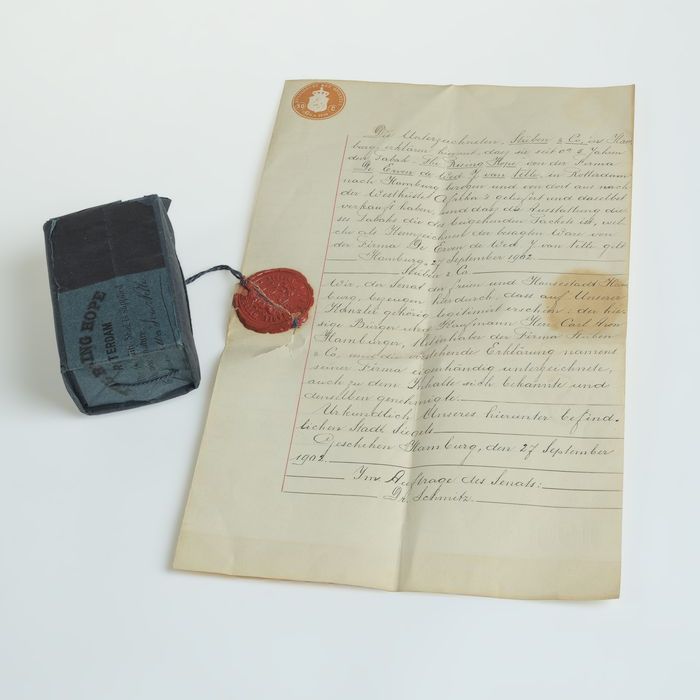 RISING HOPE
ROTTERDAM
Die Unterzeichneten, Stüben & Co, in Ham-
burg, erklären hiermit, dass sie seit 5 Jahren
den Tabak "The Rising Hope" von der Firma
De Erven de Wed. J. van Nelle, in Rotterdam
nach Hamburg bezogen und von dort aus nach
der Westküste Afrika's geliefert und daselbst
verkauft haben, und dass die Ausstattung die-
ses Tabaks die des beigehenden Packets ist, wel-
che als Kennzeichnet der besagten Ware von
der Firma De Erven de Wed. J. van Nelle gilt
Hamburg, 27 September 1902.
Stüben & Co.
Wir, der Senat der freien und Hansestadt Ham-
burg, bezeugen hierdurch, dass auf Unserer
Kanzlei gehörig legitimiert erschien: der hie-
sige Bürger und Kaufmann Herr Carl Aron
Hamburger, Mitinhaber der Firma Stüben
& Co, und die vorstehende Erklärung namens
seiner Firma eigenhändig unterzeichnete,
auch zu dem Inhalte sich bekannte und
denselben genehmigte.
Urkundlich Unseres hierunter befind-
lichen Stadt Siegels.
Geschehen Hamburg, den 27 September
1902.
Im Auftrage des Senats:
Dr. Schmitz.